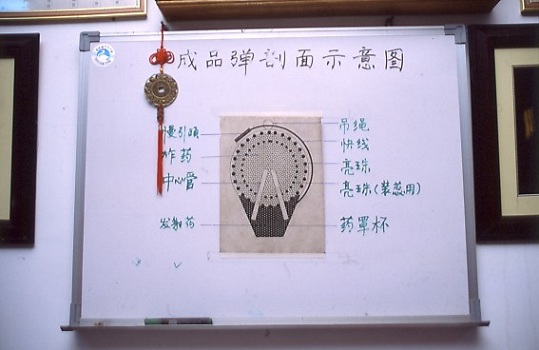 成品弹剖面示意图
慢引啯
炸药
中心管
发射药
吊绳
快线
亮珠
亮珠(装蕊用)
药罩杯